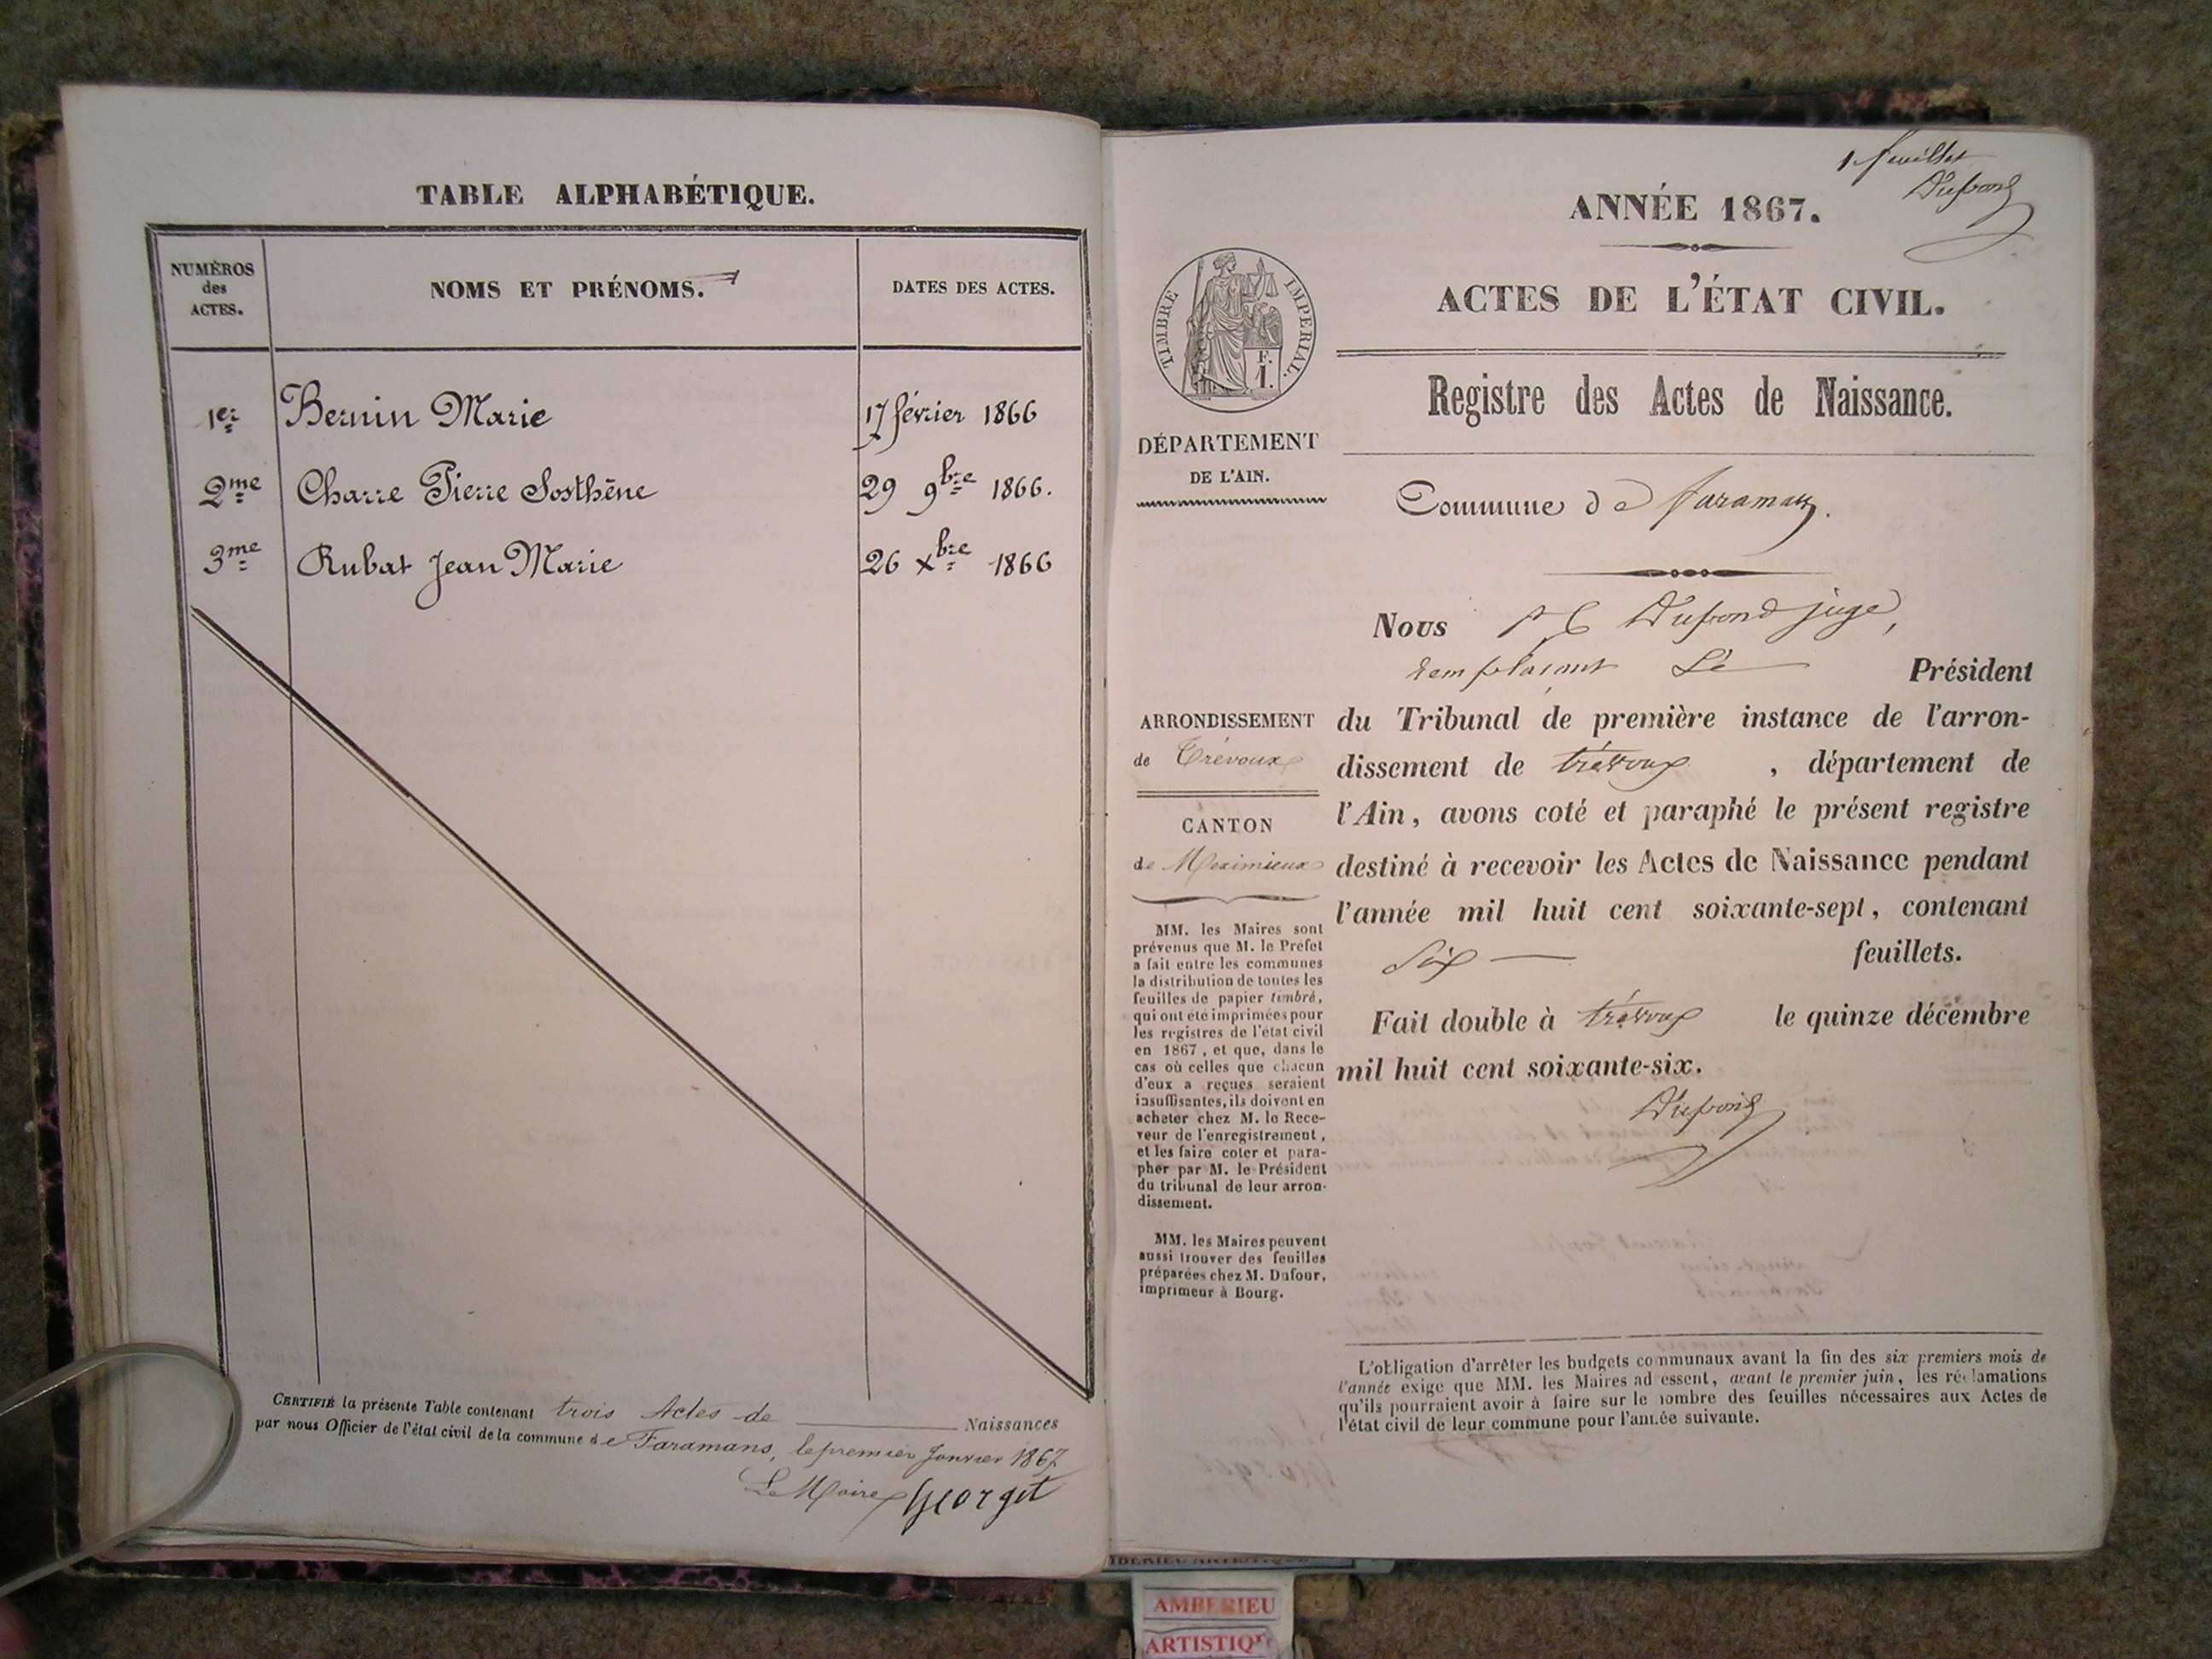 TABLE ALPHABÉTIQUE.
NUMÉROS
des
ACTES.
NOMS ET PRÉNOMS.
DATES DES ACTES.
1er Bernin Marie 17 février 1866
2me Charre Pierre Sosthène 29 9bre 1866.
3me Rubat Jean Marie 26 xbre 1866
CERTIFIÉ la présente Table contenant trois Actes de Naissances
par nous Officier de l'état civil de la commune de Faramans, le premier Janvier 1867
Le Maire Georget
1 feuillet
Dufond
ANNÉE 1867.
ACTES DE L'ÉTAT CIVIL.
TIMBRE IMPERIAL.
F.
1.
Registre des Actes de Naissance.
DÉPARTEMENT
DE L'AIN.
Commune de Faramans.
Nous Dufond juge,
remplaçant Le Président
ARRONDISSEMENT
de Trévoux
CANTON
de Meximieux
du Tribunal de première instance de l'arron-
dissement de trévoux, département de
l'Ain, avons coté et paraphé le présent registre
destiné à recevoir les Actes de Naissance pendant
l'année mil huit cent soixante-sept, contenant
Six feuillets.
Fait double à trévoux le quinze décembre
mil huit cent soixante-six.
Dufond
MM. les Maires sont
prévenus que M. le Préfet
a fait entre les communes
la distribution de toutes les
feuilles de papier timbré,
qui ont été imprimées pour
les registres de l'état civil
en 1867, et que, dans le
cas où celles que chacun
d'eux a reçues seraient
insuffisantes, ils doivent en
acheter chez M. le Rece-
veur de l'enregistrement,
et les faire coter et para-
pher par M. le Président
du tribunal de leur arron-
dissement.
MM. les Maires peuvent
aussi trouver des feuilles
préparées chez M. Dufour,
imprimeur à Bourg.
L'obligation d'arrêter les budgets communaux avant la fin des six premiers mois de
l'année exige que MM. les Maires adressent, avant le premier juin, les réclamations
qu'ils pourraient avoir à faire sur le nombre des feuilles nécessaires aux Actes de
l'état civil de leur commune pour l'année suivante.
AMBERIEU ARTISTIQUE
AMBERIEU
ARTISTIQUE